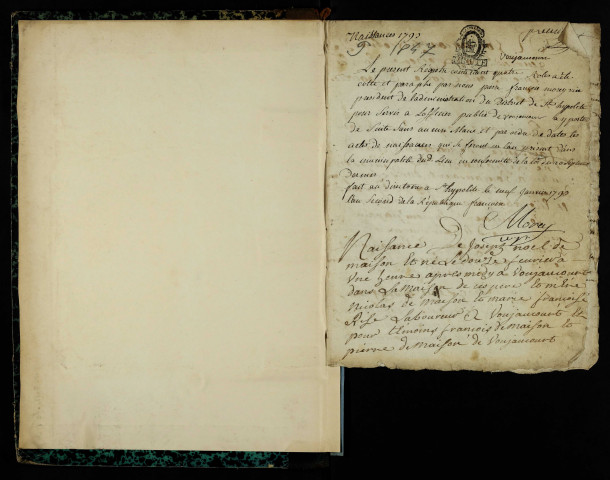 Naissances 1793
Voujaucour
Le present Registre contenant quatre
cotte et paraphé par nous pierre françois
president de ladministration du District de St hypolite
pour Servir a Lofficier public de
de Suite Sans aucun Blanc et par ordre de dates les
actes de naissances qui se feront en lan present dans
la municipalité dud Lieu en conformité de la Loi du
Dernier
fait au directoire a St hypolite le neuf Janvier 1793
lan Second de la République françoise
Naisance De Joseph noel de
maison Est né Le douze feuvrier a
vne heure apres midy a Voujaucourt
dans La Maison de ces pere et mere
Nicolas de maison et marie francoise
Rife Laboureur a Voujaucourt
pour temoins francois de maison et
pierre de maison de Voujaucourt